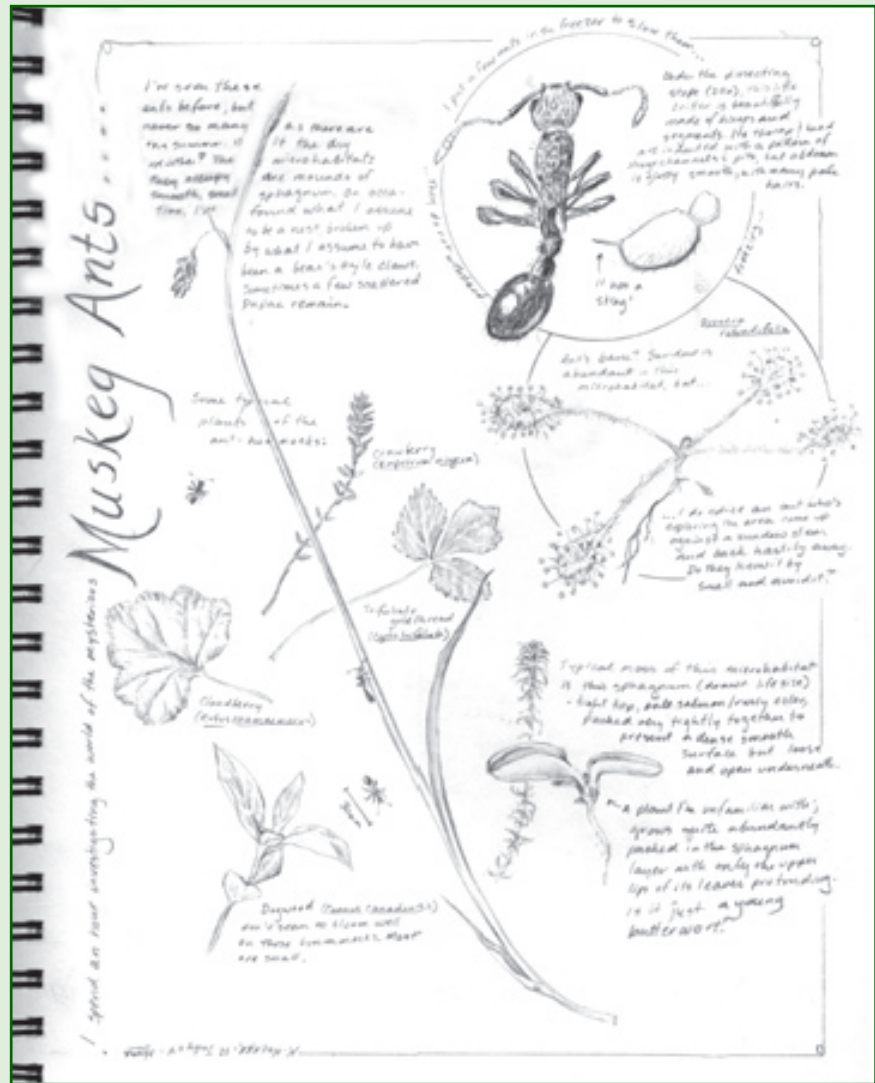 Muskeg Ants....
I spend an hour investigating the world of the mysterious
I've seen these
ants before, but
never so many
this summer. Is
it the dry
weather? The
They occupy
smooth, small
Time, I've
As there are
microhabitats
are mounds of
sphagnum. On
found what I assume
to be a nest broken up
by what I assume to have
been a bear's agile claws.
Sometimes a few scattered
pupae remain.
I put a few ants in the freezer to slow them...
Under the dissecting
scope (20x), this little
critter is beautifully
made of bumps and
segments. Its thorax/head
are indented with a pattern of
channels & pits, but abdomen
is glossy smooth, with many pale
hairs.
freezing...
it has a
sting!
Drosera
rotundifolia
Ant's bane? Sundew is
abundant in this
microhabitat, but...
...I do notice an ant who's
exploring the area come up
against a sundew stem
and back hastily away.
Do they know it by
smell and avoid it?
Some typical
plants of the
ant-hummocks:
Crowberry
(Empetrum nigrum)
Trifoliate
goldthread
(Coptis trifoliata)
Cloudberry
(Rubus chamaemorus)
Dogwood (Cornus canadensis)
don't seem to bloom well
on these hummocks. Most
are small.
Typical moss of this microhabitat
is this sphagnum (drawn lifesize)
- tight top, pale salmon/rusty color,
packed very tightly together to
present a dense smooth
surface but loose
and open underneath.
A plant I'm unfamiliar with;
grows quite abundantly
packed in the sphagnum
layer with only the upper
lip of its leaves protruding.
Is it just a young
butterwort?